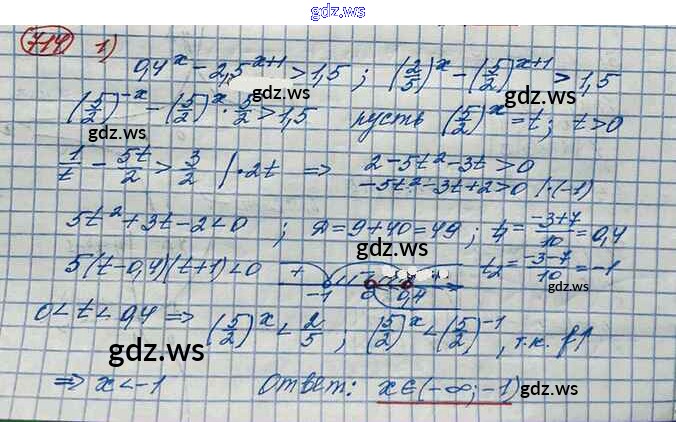 gdz.ws
714 1)
0,4^x - 2,5^{x+1} > 1,5 ; (2/5)^x - (5/2)^{x+1} > 1,5
gdz.ws
(5/2)^{-x} - (5/2)^x · 5/2 > 1,5 пусть (5/2)^x = t; t > 0
gdz.ws gdz.ws
1/t - 5t/2 > 3/2 |·2t ⇒ 2 - 5t² - 3t > 0
-5t² - 3t + 2 > 0 |·(-1)
5t² + 3t - 2 < 0 ; D = 9 + 40 = 49 ; t₁ = (-3+7)/10 = 0,4
gdz.ws
5(t - 0,4)(t + 1) < 0 + -1 0 0,4 t₂ = (-3-7)/10 = -1
gdz.ws
0 < t < 0,4 ⇒ (5/2)^x < 2/5 ; (5/2)^x < (5/2)^{-1}, т.к. f↑
gdz.ws gdz.ws
⇒ x < -1 Ответ: x ∈ (-∞; -1)
gdz.ws
gdz.ws